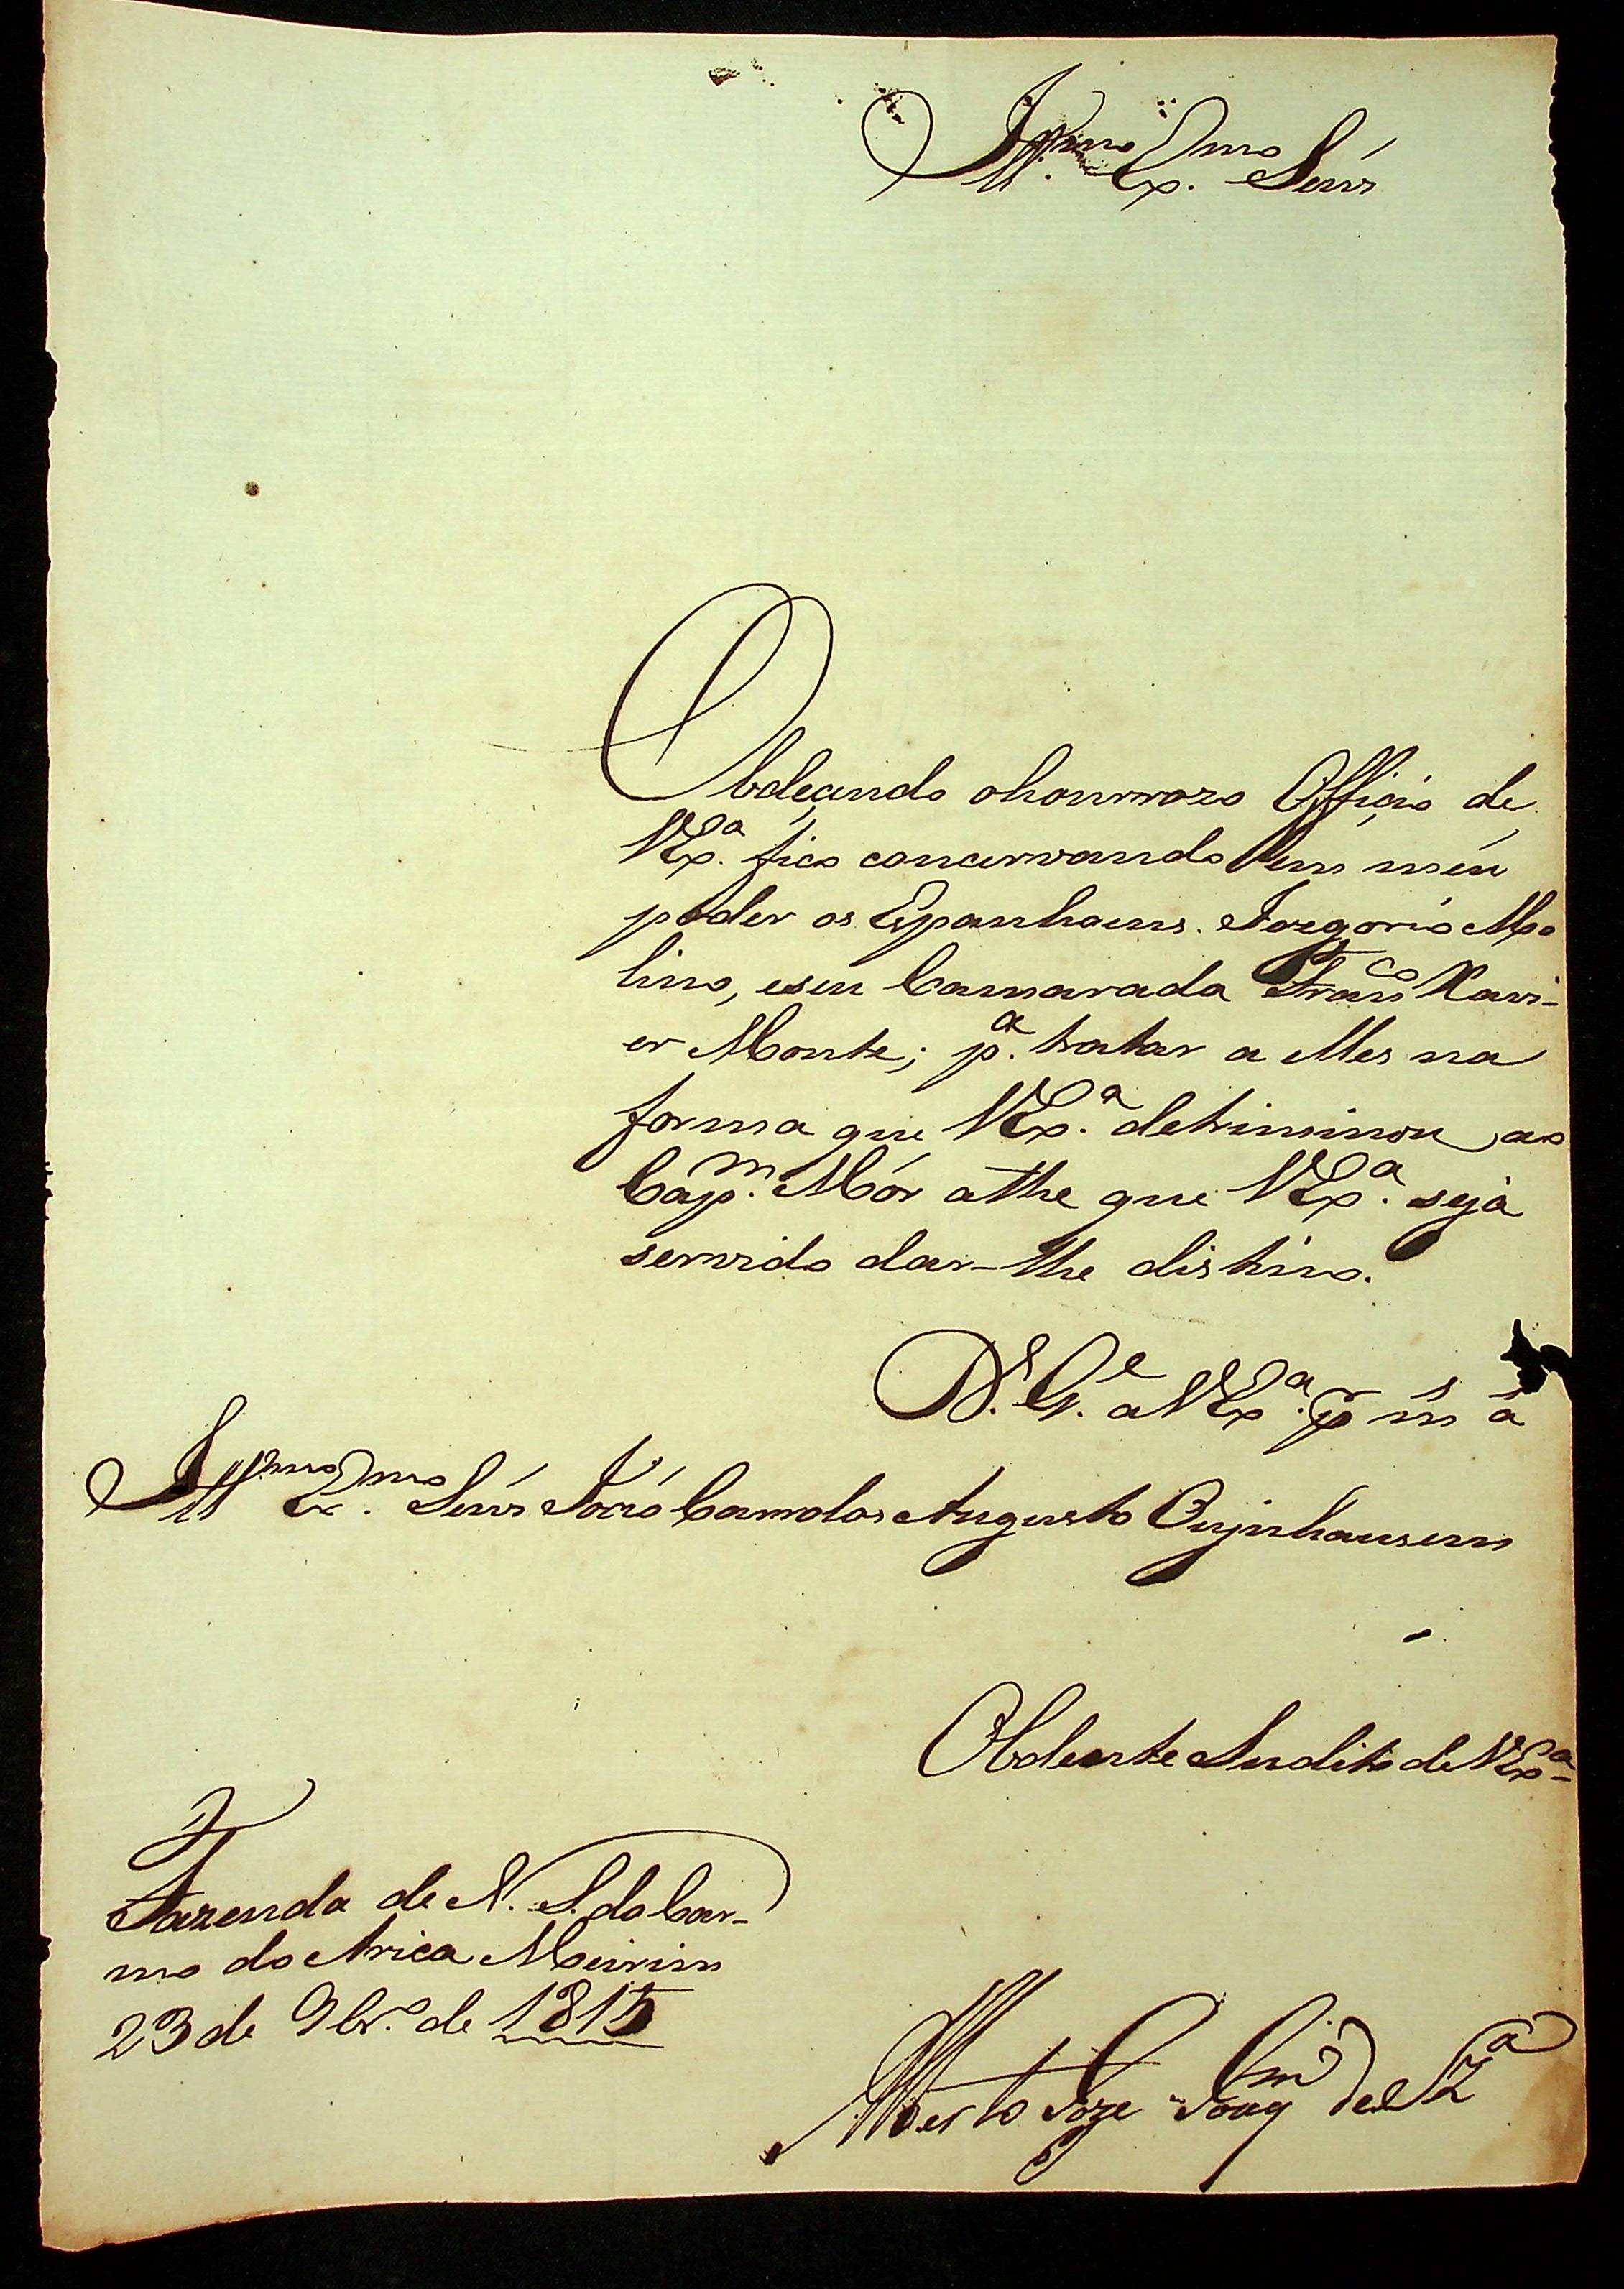 Ill.mo Ex.mo Senr
Obdeçendo ohonrrozo Offiçio de
VEx.a fico concervando em meu
poder os Espanhoens. Joregorio Mo
lino, eseu Camarada Franco Xavi-
er Monte; p.a tratar a elles na
forma que VEx.a detriminou ao
Cap.m Mór athe que VEx.a seja
servido dar-lhe distino.
D.s G.e a VEx.a p m a
Ill.mo Ex.mo Senr João Carolos Augusto Oujnhausem
Obdeente Sudito de VExa
Fazenda de N. S. do Car-
mo do Arica Meirim
23 de 9br.o de 1815
Alberto Joze Joaqm de Sza